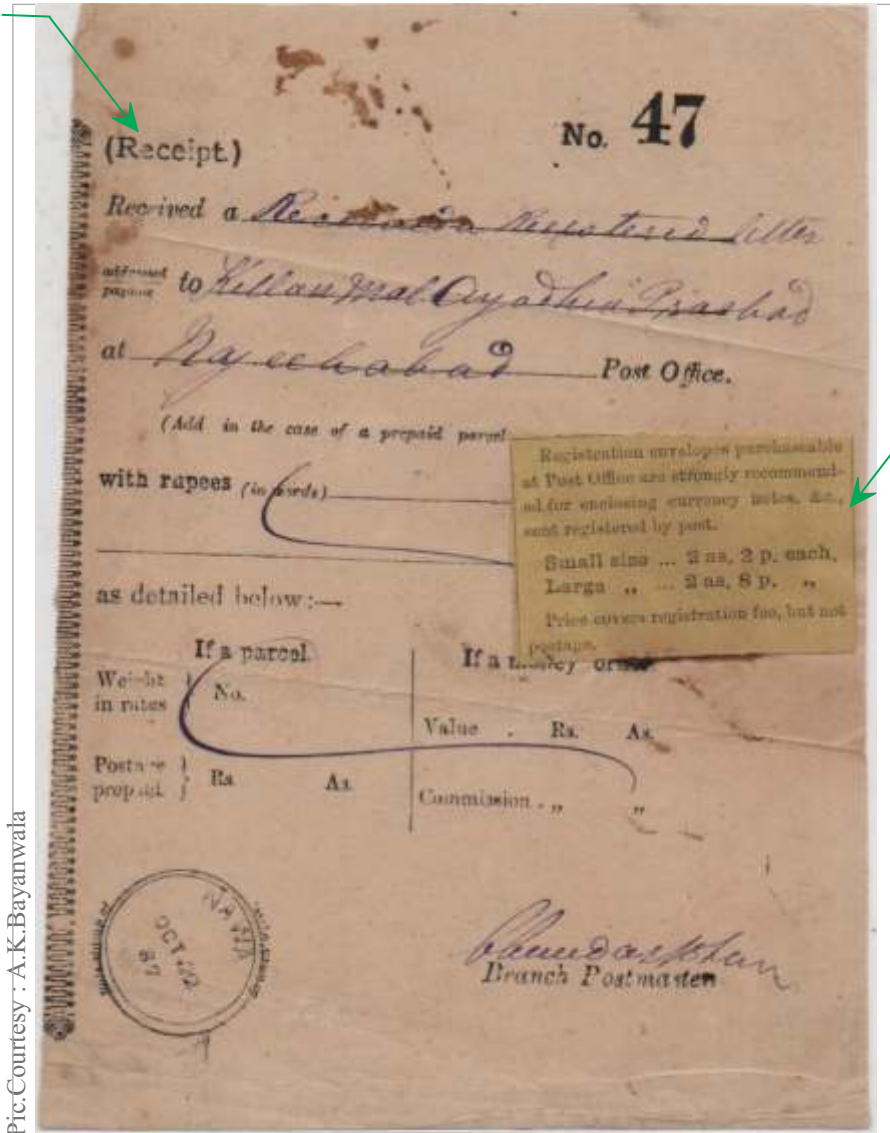 (Receipt.)
No. 47
Received a Registered letter
addressed
payable to Killan Mal Ayodhia Prashad
at Najeebabad Post Office.
(Add in the case of a prepaid parcel
with rupees (in words)
Registration envelopes purchaseable
at Post Office are strongly recommend-
ed for enclosing currency notes, &c.,
sent registered by post.
Small size ... 2 as, 2 p. each,
Large „ ... 2 as, 8 p. „
Price covers registration fee, but not
postage.
as detailed below:—
If a parcel.
Weight
in rates } No.
Postage
prepaid. } Rs. As.
If a money order
Value . Rs. As.
Commission . „ „
NAWA
OCT 22
87
Branch Postmaster
Pic.Courtesy : A.K.Bayanwala